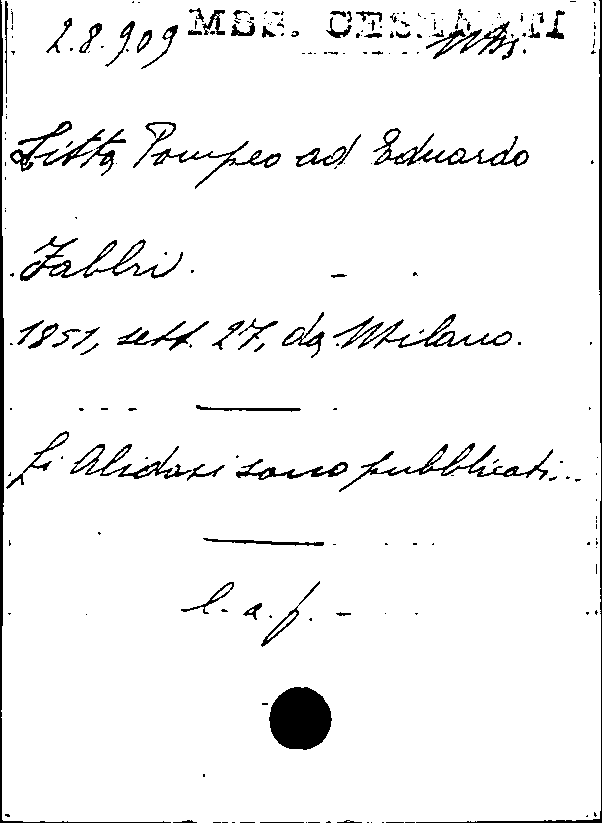 2.8.909 MSS. CESENATI Mss.
Litta Pompeo ad Eduardo
Fabbri.
1851, sett. 27, da Milano.
Gli Alidosi sono pubblicati...
l. a. f. -